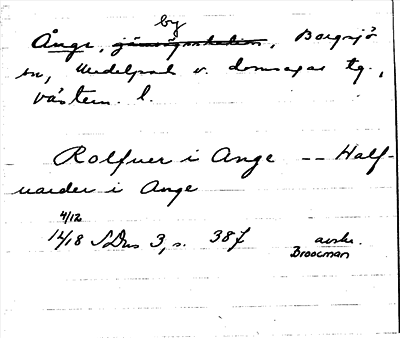 by
Ånge, järnvägsstation, Borgsjö
sn, Medelpads v. domsagas tg.,
västern. l.
Rolfuer i Ange -- Half-
uarder i Ange
4/12
1418 SDns 3, s. 387 avskr.
Broocman